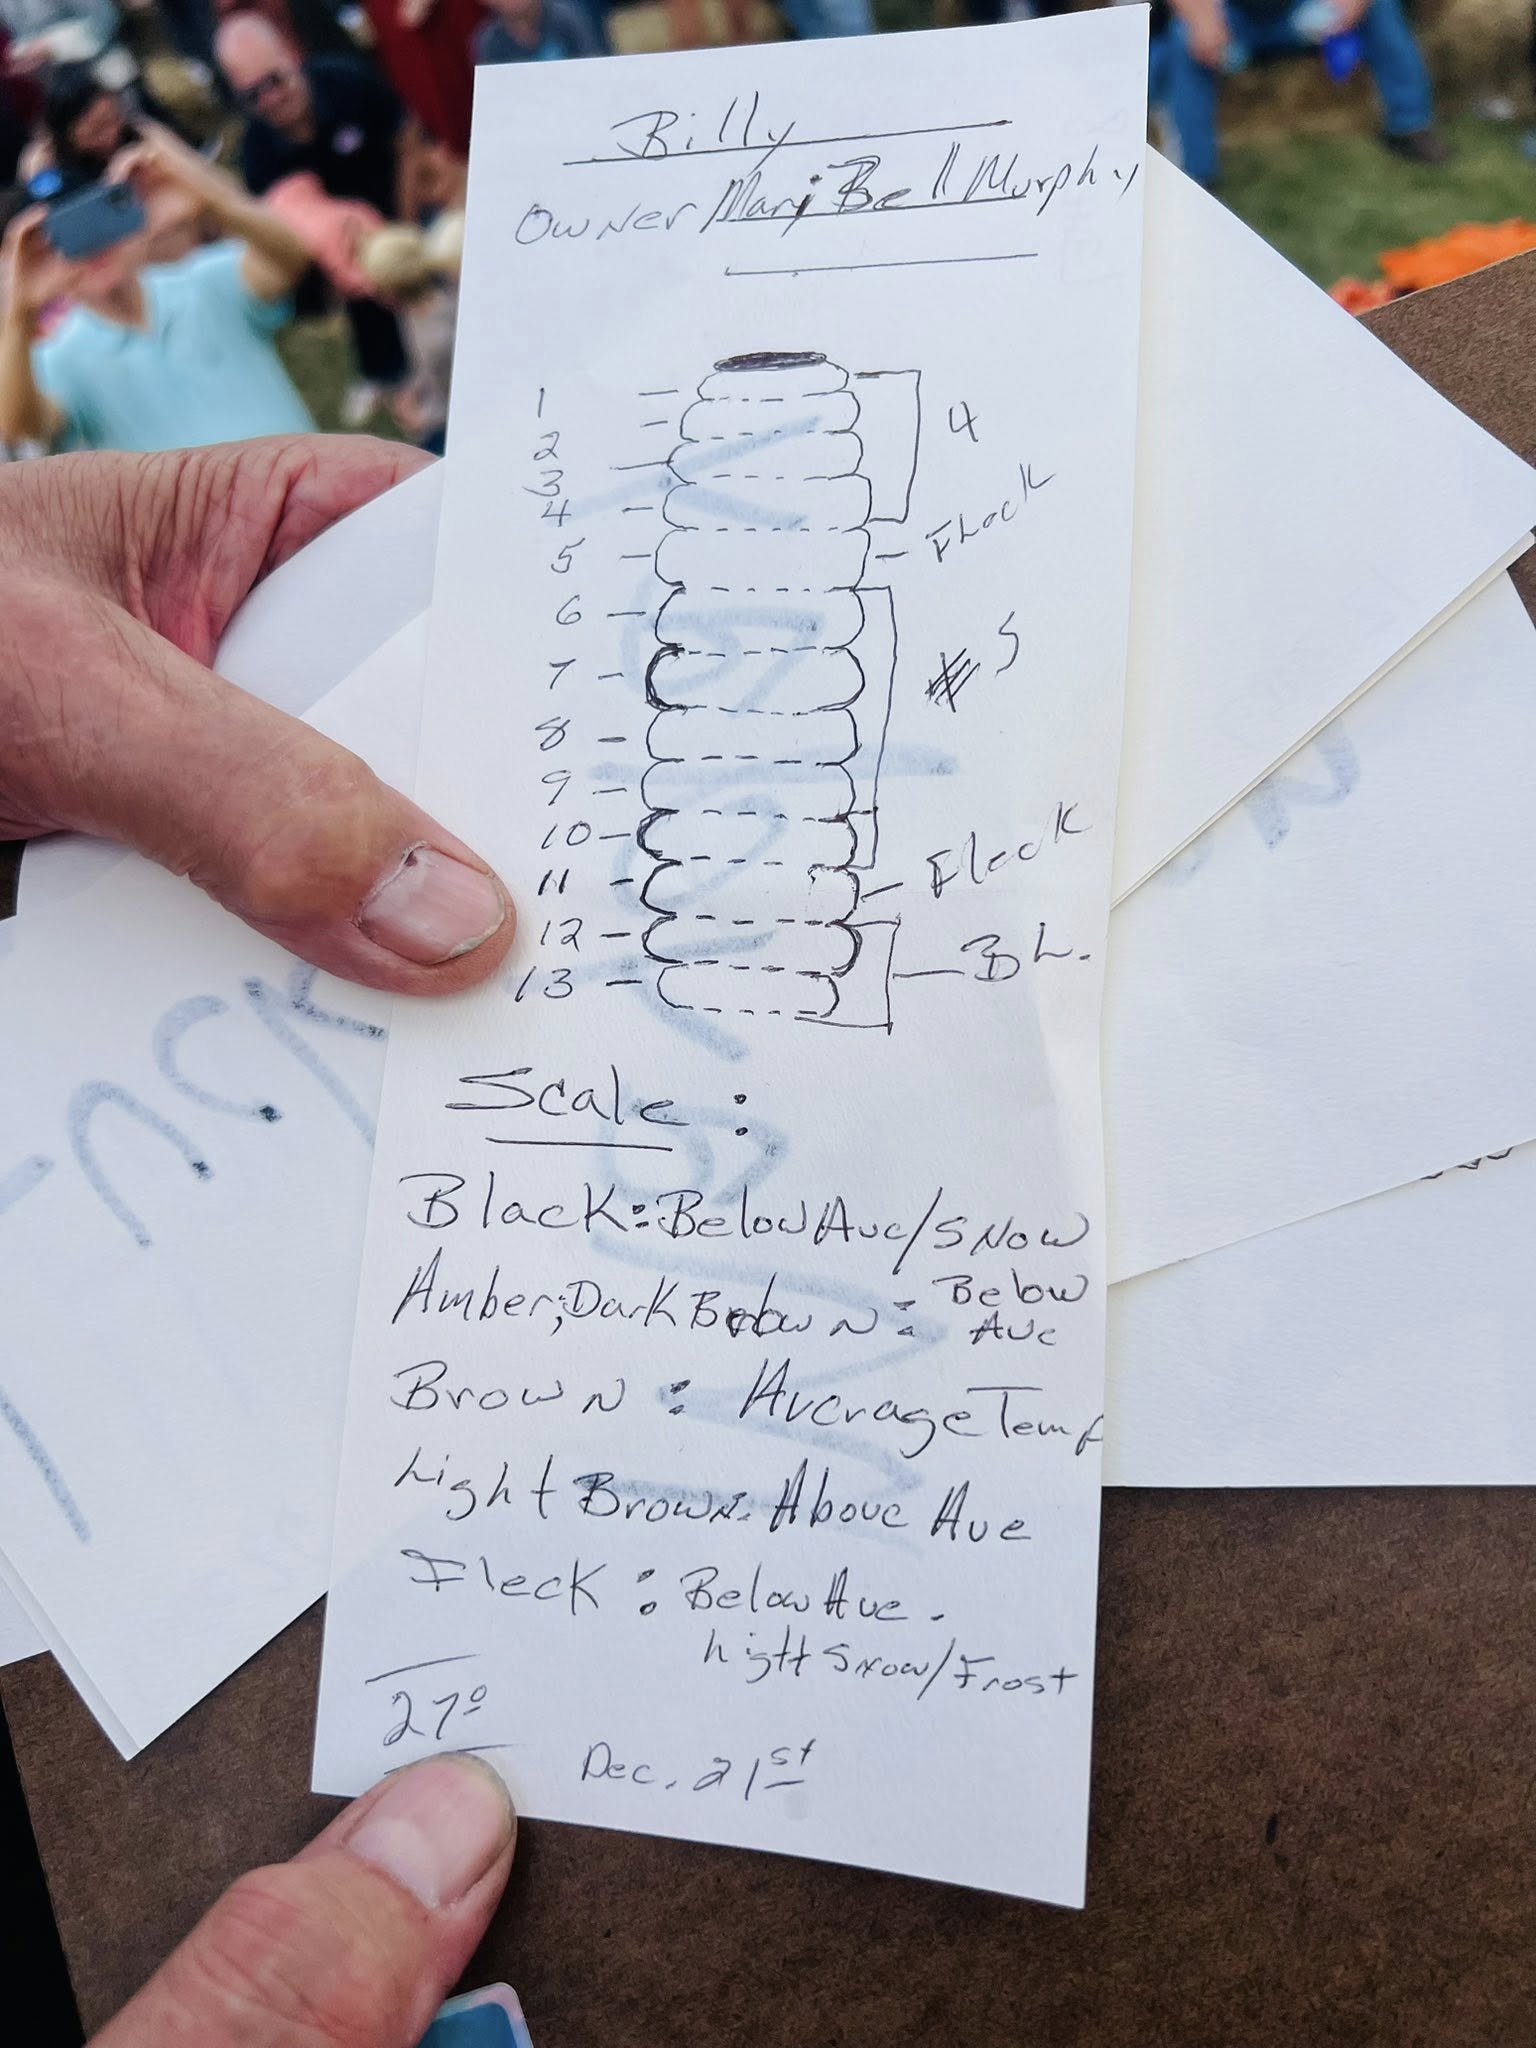 Billy
Owner Mary Bell Murphy
1
2
3
4
5
6
7
8
9
10
11
12
13
4
Fleck
5
Fleck
BL.
Scale:
Black: Below Ave/Snow
Amber; Dark Brown: Below Ave
Brown: Average Temp
Light Brown: Above Ave
Fleck: Below Ave.
Light Snow/Frost
27°
Dec. 21st